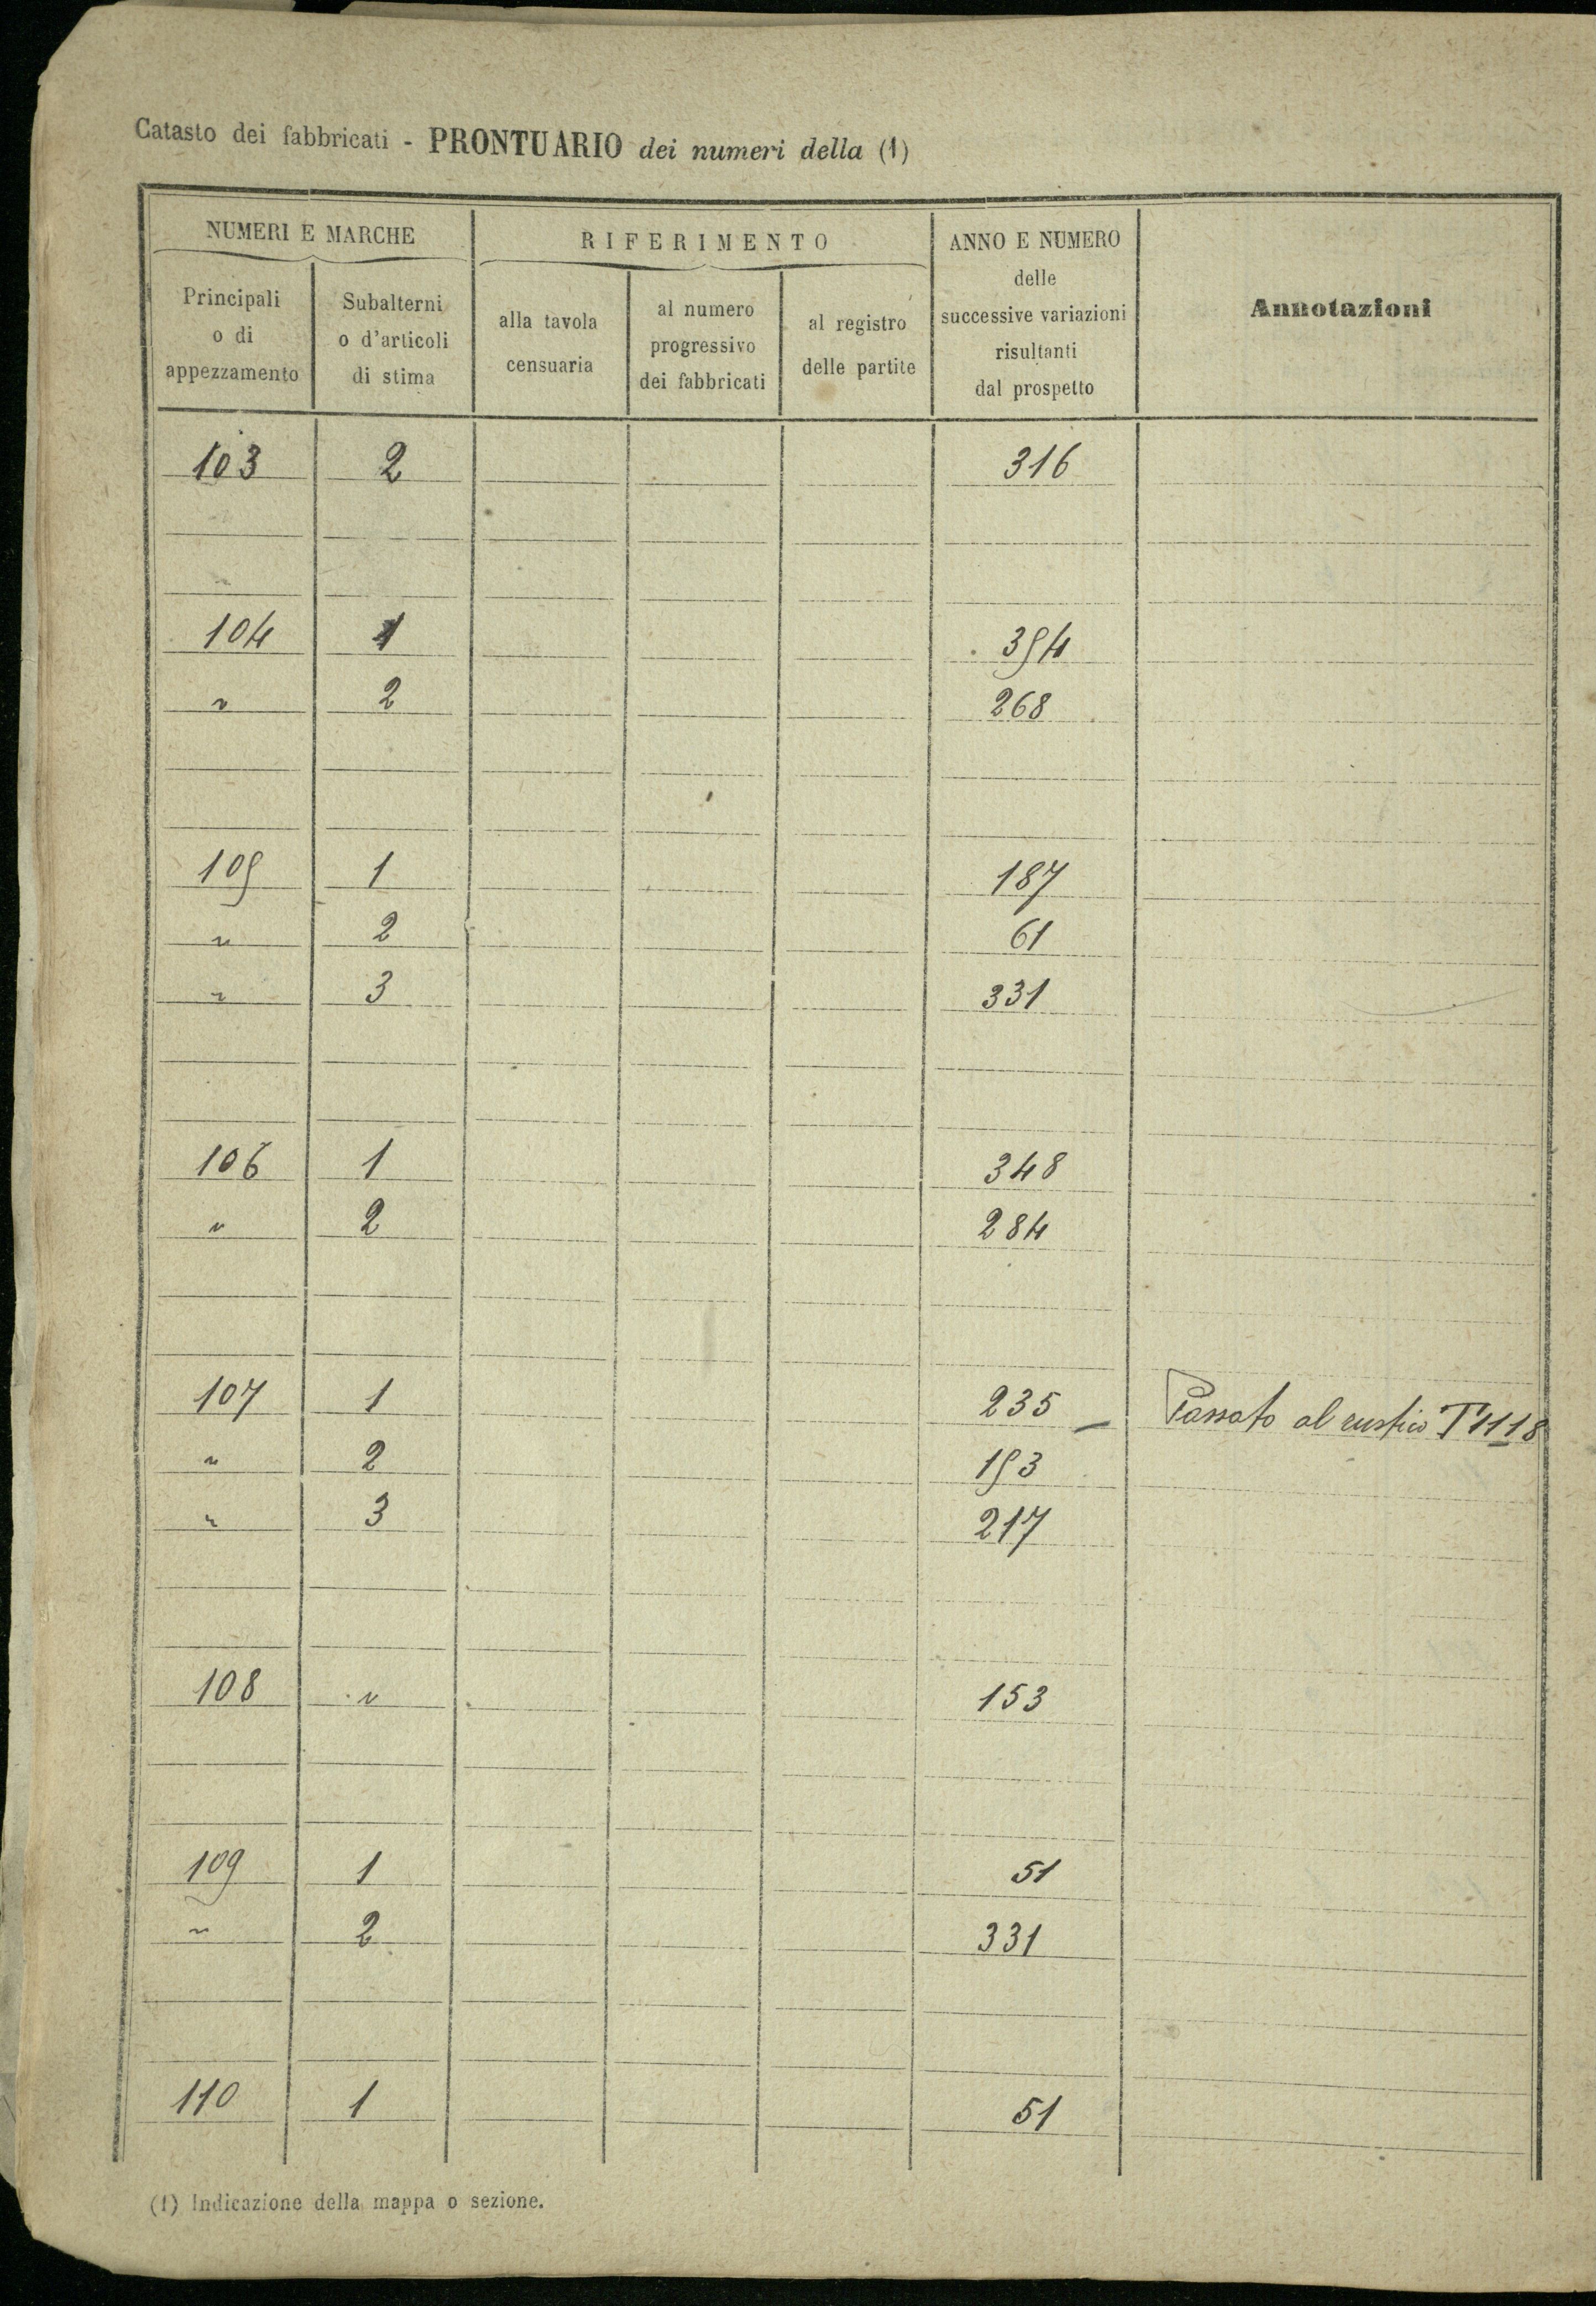 Catasto dei fabbricati - PRONTUARIO dei numeri della (1)
NUMERI E MARCHE
RIFERIMENTO
ANNO E NUMERO
delle
successive variazioni
risultanti
dal prospetto
Annotazioni
Principali
o di
appezzamento
Subalterni
o d'articoli
di stima
alla tavola
censuaria
al numero
progressivo
dei fabbricati
al registro
delle partite
103 2 316
104 1 354
" 2 268
105 1 187
" 2 61
" 3 331
106 1 348
" 2 284
107 1 235 – Passato al rustico T 1118
" 2 153
" 3 217
108 " 153
109 1 51
" 2 331
110 1 51
(1) Indicazione della mappa o sezione.